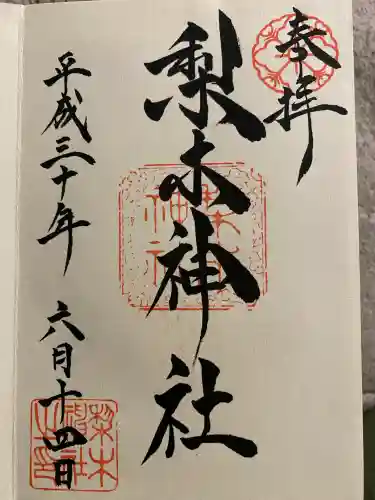 奉拝
梨木神社
平成三十年 六月十四日
梨木神社